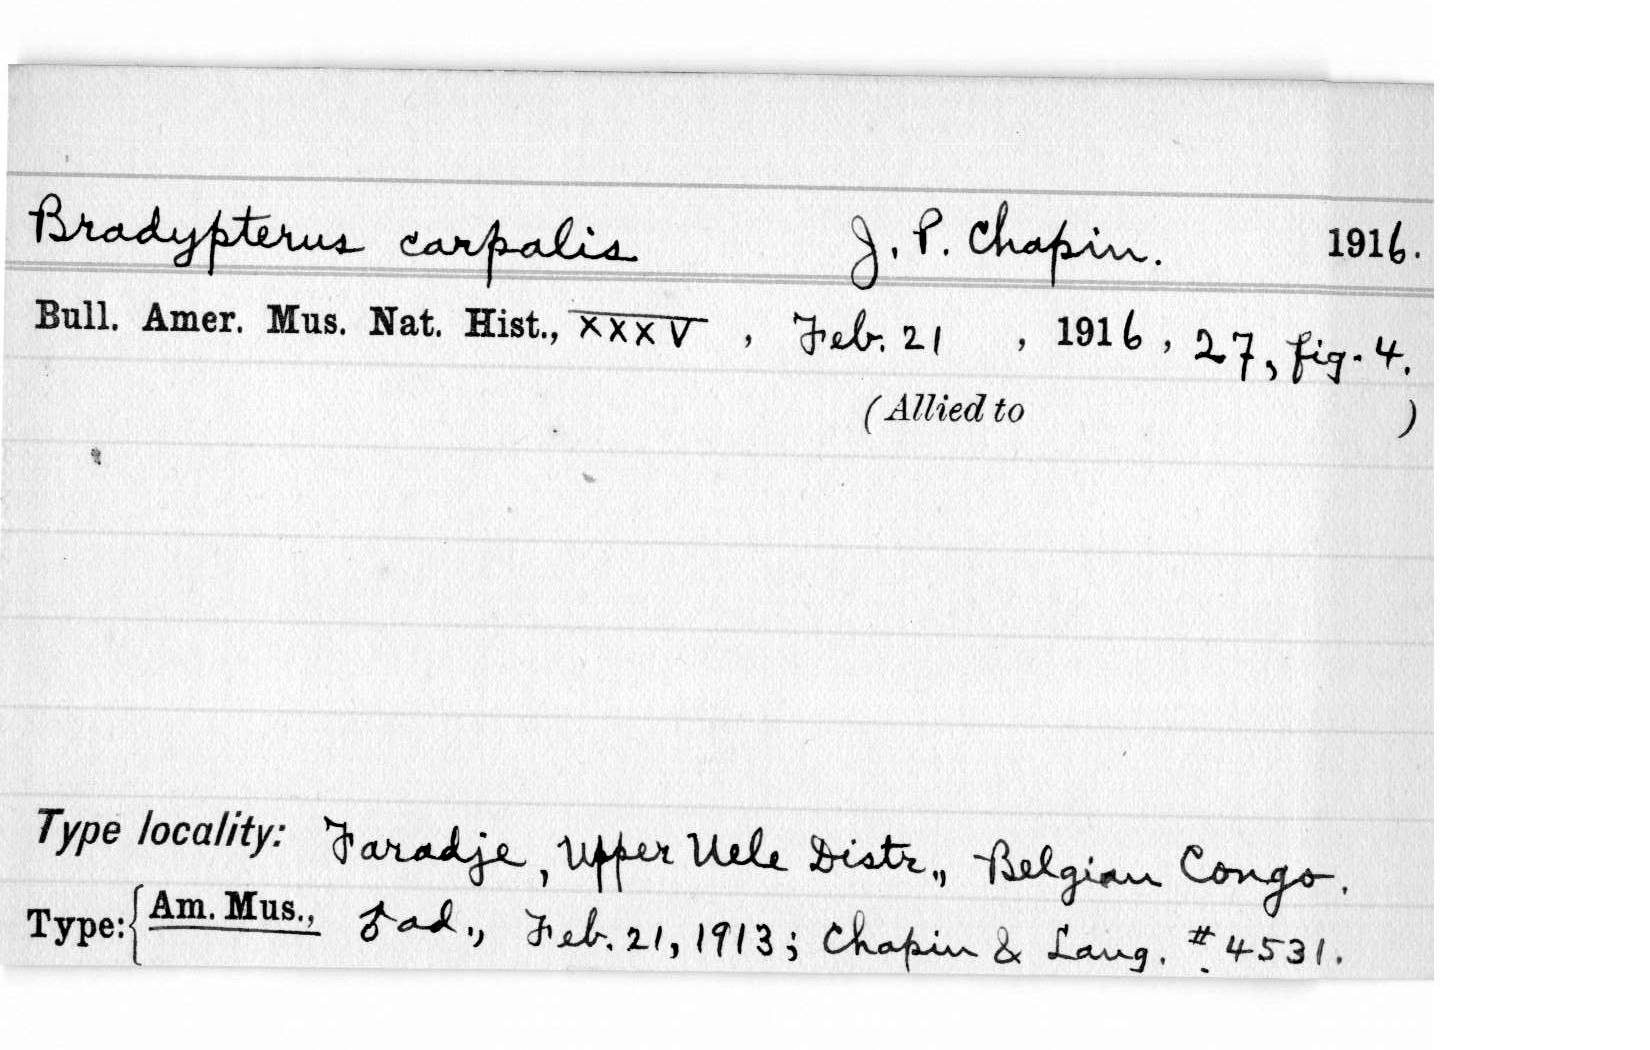 Bradypterus carpalis J. P. Chapin. 1916.
Bull. Amer. Mus. Nat. Hist., XXXV, Feb. 21, 1916, 27, fig. 4.
(Allied to )
Type locality: Faradje, Upper Uele Distr., Belgian Congo.
Type: { Am. Mus., ad., Feb. 21, 1913; Chapin & Lang. # 4531.